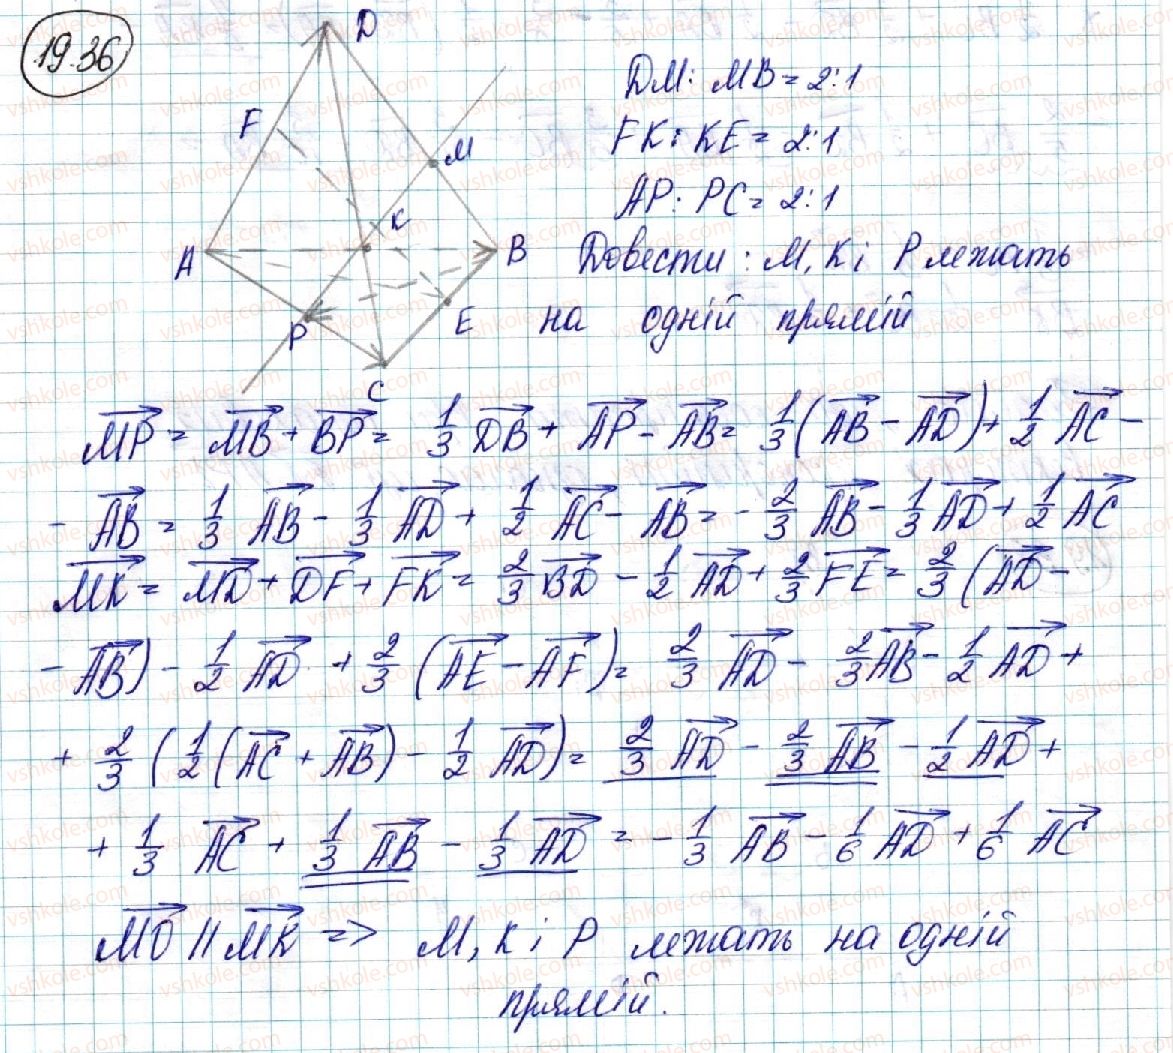 19.36
D
F
M
K
A
B
P
E
C
DM : MB = 2:1
FK : KE = 2:1
AP : PC = 2:1
Довести : M, K і P лежать
на одній прямій
MP⃗ = MB⃗ + BP⃗ = 1/3 DB⃗ + AP⃗ - AB⃗ = 1/3 (AB⃗ - AD⃗) + 1/2 AC⃗ -
- AB⃗ = 1/3 AB⃗ - 1/3 AD⃗ + 1/2 AC⃗ - AB⃗ = - 2/3 AB⃗ - 1/3 AD⃗ + 1/2 AC⃗
MK⃗ = MD⃗ + DF⃗ + FK⃗ = 2/3 BD⃗ - 1/2 AD⃗ + 2/3 FE⃗ = 2/3 (AD⃗ -
- AB⃗) - 1/2 AD⃗ + 2/3 (AE⃗ - AF⃗) = 2/3 AD⃗ - 2/3 AB⃗ - 1/2 AD⃗ +
+ 2/3 (1/2 (AC⃗ + AB⃗) - 1/2 AD⃗) = 2/3 AD⃗ - 2/3 AB⃗ - 1/2 AD⃗ +
+ 1/3 AC⃗ + 1/3 AB⃗ - 1/3 AD⃗ = - 1/3 AB⃗ - 1/6 AD⃗ + 1/6 AC⃗
MO⃗ || MK⃗ => M, K і P лежать на одній
прямій.
vshkole.com